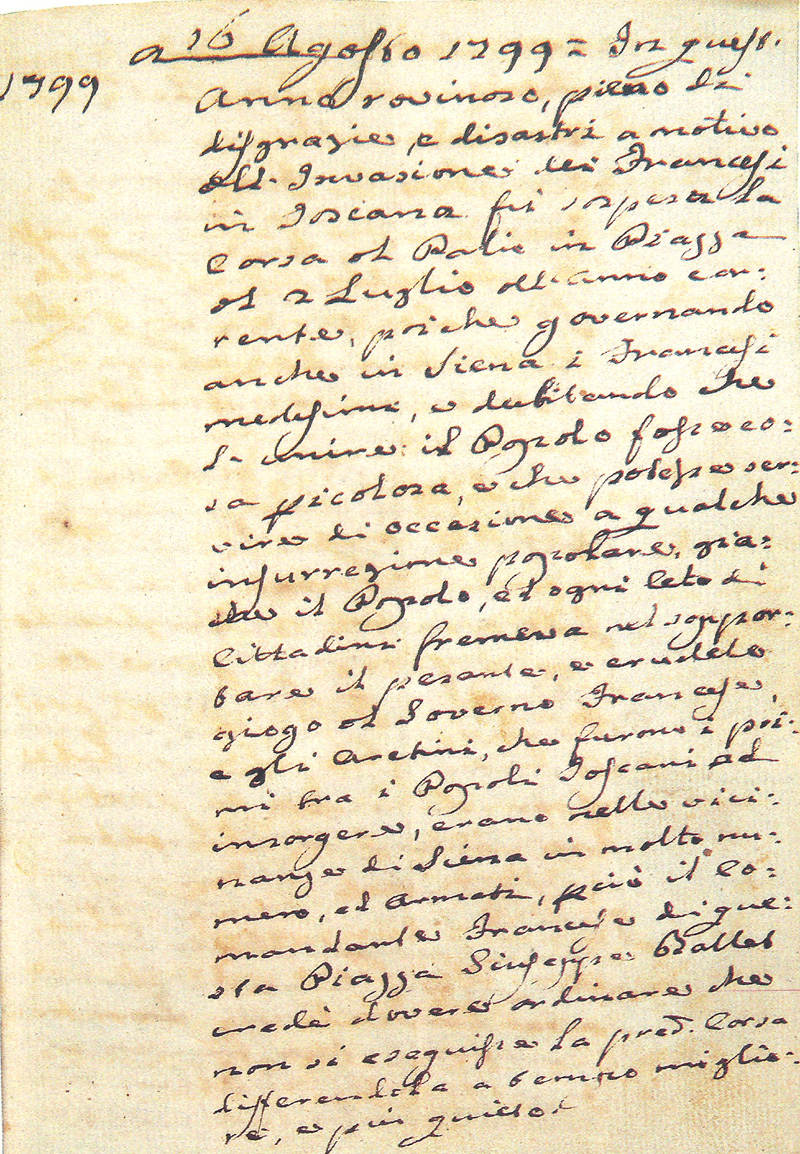 a 16 Agosto 1799 = In quest.
1799
Anno rovinoso, pieno di
disgrazie, e disastri a motivo
dell. Invasione dei Francesi
in Toscana fù sospesa la
Corsa al Palio in Piazza
al 2 Luglio dell. anno cor:
rente, poiche governando
anche in Siena i Francesi
medesimi, e dubitando che
l. unire il Popolo fosse co:
sa picolosa, e che potesse ser:
vire di occasione a qualche
insurrezione popolare, gia:
che il Popolo, ed ogni Ceto di
Cittadini fremeva nel soppor:
tare il pesante, e crudele
giogo al Governo Francese,
e gli Aretini, che furono i pri:
mi tra i Popoli Toscani ad
insorgere, erano nelle vici:
nanze di Siena in molto nu:
mero, ed Armati, pciò il Co:
mandante Francese di que:
sta Piazza Giuseppe Ballet
credè dovere ordinare che
non si eseguisse la pred. Corsa
differendola a tempo miglio:
re, e più quieto.